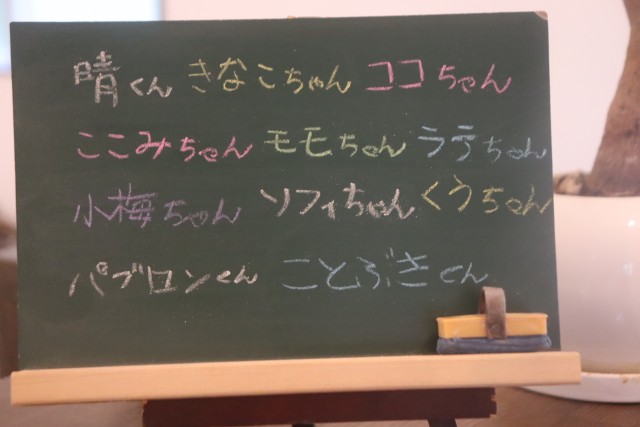 晴くん きなこちゃん ココちゃん
ここみちゃん モモちゃん ララちゃん
小梅ちゃん ソフィちゃん くうちゃん
パブロンくん ことぶきくん